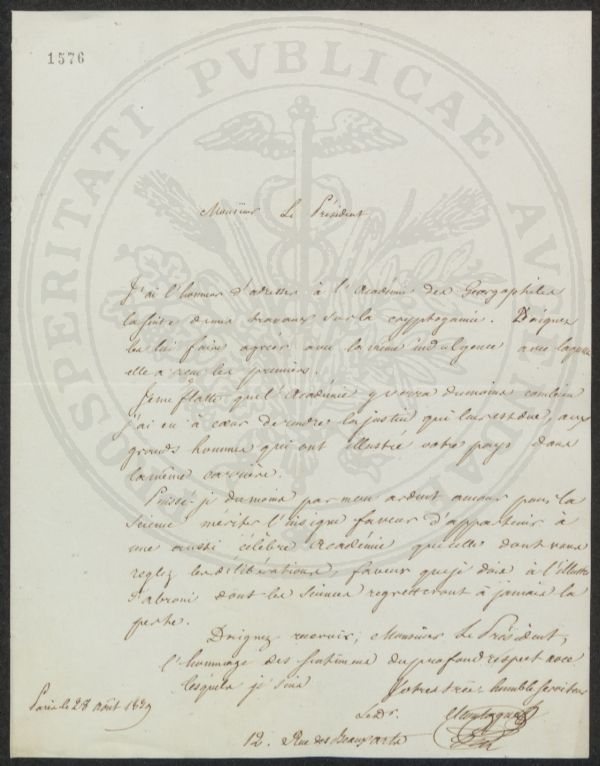 1576
PROSPERITATI PVBLICAE AVGENDAE
Monsieur Le Président
J'ai l'honneur d'adresser à l'Académie des Georgophiles
la suite de mes travaux sur la cryptogamie. Daignez
les lui faire agréer avec la même indulgence avec laquelle
elle a reçu les premiers.
Je me flatte que l'Académie y verra du moins combien
j'ai eu à cœur de rendre la justice qui leur est due, aux
grands hommes qui ont illustré votre pays dans
la même carrière.
Puissé-je du moins par mon ardent amour pour la
science mériter l'insigne faveur d'appartenir à
une aussi célèbre Académie que celle dont vous
réglez les délibérations, faveur que je dois à l'illustre
Fabroni dont les sciences regretteront à jamais la
perte.
Daignez recevoir, Monsieur Le Président,
l'hommage des sentimens du profond respect avec
lesquels je suis Votre très humble serviteur
Paris le 28 août 18
Le Dr. CMontagne
12. Rue des Beaux arts